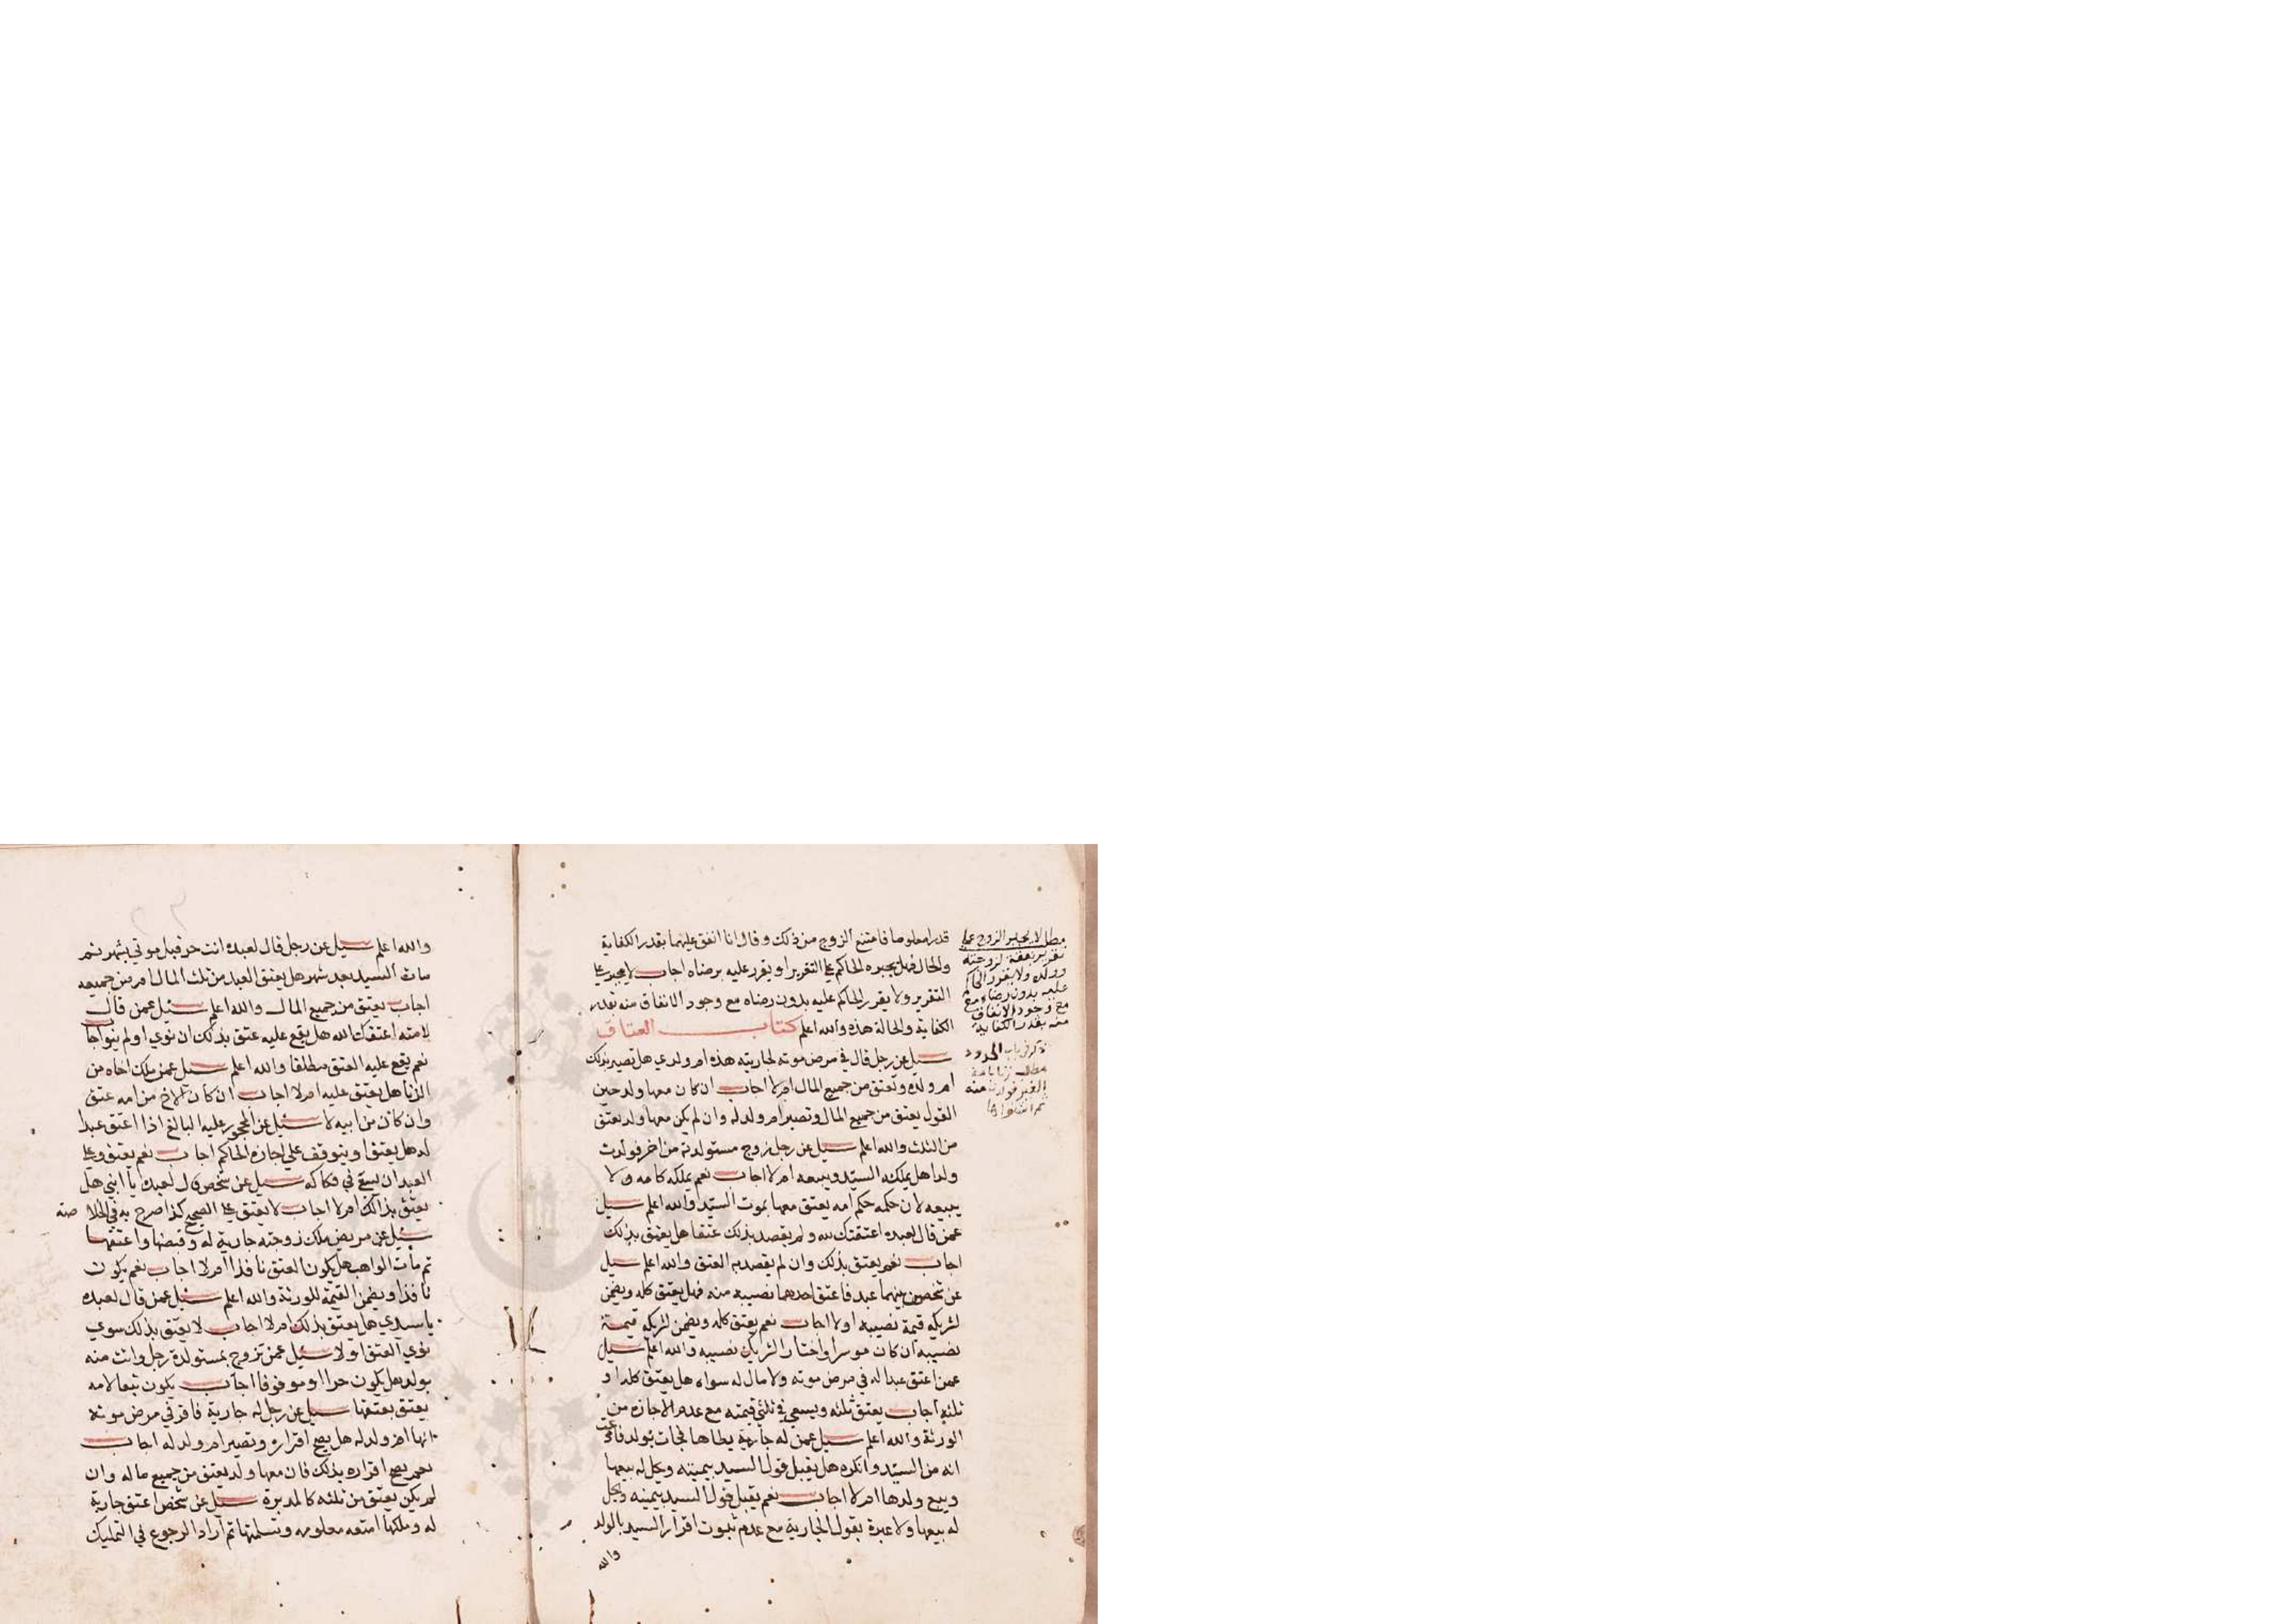 قدرا معلوما فامتنع الزوج من ذلك وقال انا انفق عليهما بقدر الكفاية
والحال فهل يجبره الحاكم على التقرير او يقرر عليه برضاه اجاب لا يجبر على
التقرير ولا يقرر الحاكم عليه بدون رضاه مع وجود الانفاق منه بقدر
الكفاية والحالة هذه والله اعلم كتاب العتاق
سيل عن رجل قال في مرض موته لجاريته هذه ام ولدي هل تصير بذلك
ام ولده وتعتق من جميع المال ام لا اجاب ان كان معها ولد حين
القول يعتق من جميع المال وتصير ام ولد له وان لم يكن معها ولد يعتق
من الثلث والله اعلم سيل عن رجل زوج مستولدته من اخر فولدت
ولدا هل يملكه السيد ويبيعه ام لا اجاب نعم يملكه كامه ولا
يبيعه لان حكمه حكم امه يعتق معها بموت السيد والله اعلم سيل
عمن قال لعبده اعتقتك لله ولم يقصد بذلك عتقا هل يعتق بذلك
اجاب نعم يعتق بذلك وان لم يقصد به العتق والله اعلم سيل
عن شخصين بينهما عبد فاعتق احدهما نصيبه منه فهل يعتق كله ويضمن
لشريكه قيمة نصيبه او لا اجاب نعم يعتق كله ويضمن لشريكه قيمة
نصيبه ان كان موسرا واختار الشريك نصيبه والله اعلم سيل
عمن اعتق عبدا له في مرض موته ولا مال له سواه هل يعتق كله او
ثلثه اجاب يعتق ثلثه ويسعى في ثلثي قيمته مع عدم الاجازة من
الورثة والله اعلم سيل عمن له جارية يطاها فجات بولد فادعت
انه من السيد وانكره هل يقبل قول السيد بيمينه ويحل له بيعها
وبيع ولدها ام لا اجاب نعم يقبل قول السيد بيمينه ويحل
له بيعها ولا عبرة بقول الجارية مع عدم ثبوت اقرار السيد بالولد
والله
مطلب لا يجبر الزوج على
تقرير نفقة لزوجته
وولده ولا يقرر الحاكم
عليه بدون رضاه مع
مع وجود الانفاق
منه بقدر الكفاية
باب الحدود
والله اعلم سيل عن رجل قال لعبده انت حر قبل موتي بشهر ثم
مات السيد بعد شهر هل يعتق العبد من ثلث المال ام من جميعه
اجاب يعتق من جميع المال والله اعلم سئل عمن قال
لامته اعتقك الله هل يقع عليه عتق بذلك ان نوي او لم ينو اجاب
نعم يقع عليه العتق مطلقا والله اعلم سيل عمن ملك اخاه من
الزنا هل يعتق عليه ام لا اجاب ان كان الاخ من امه عتق
وان كان من ابيه لا سئل عن المحجور عليه البالغ اذا اعتق عبدا
له هل يعتق او يتوقف على اجازة الحاكم اجاب نعم يعتق وعلى
العبد ان يسعى في فكاكه سيل عن شخص قال لعبده يا ابني هل
يعتق بذلك ام لا اجاب لا يعتق على الصحيح كذا صرح به في الخلا صة
سئل عن مريض ملك زوجته جارية له وقبضها واعتقها
ثم مات الواهب هل يكون العتق نافذا ام لا اجاب نعم يكون
نافذا ويضمن القيمة للورثة والله اعلم سئل عمن قال لعبده
يا سيدي هل يعتق بذلك ام لا اجاب لا يعتق بذلك سوي
نوي العتق او لا سئل عمن تزوج بمستولدة رجل واتت منه
بولد هل يكون حرا او موقوفا اجاب يكون تبعا لامه
يعتق بعتقها سيل عن رجل له جارية فاقر في مرض موته
انها ام ولد له هل يصح اقراره وتصير ام ولد له اجاب
نعم يصح اقراره بذلك فان معها ولد يعتق من جميع ماله وان
لم يكن يعتق من ثلثه كالمدبرة سئل عن شخص اعتق جارية
له وملكها امتعه معلومه وتسلمتها ثم اراد الرجوع في التمليك